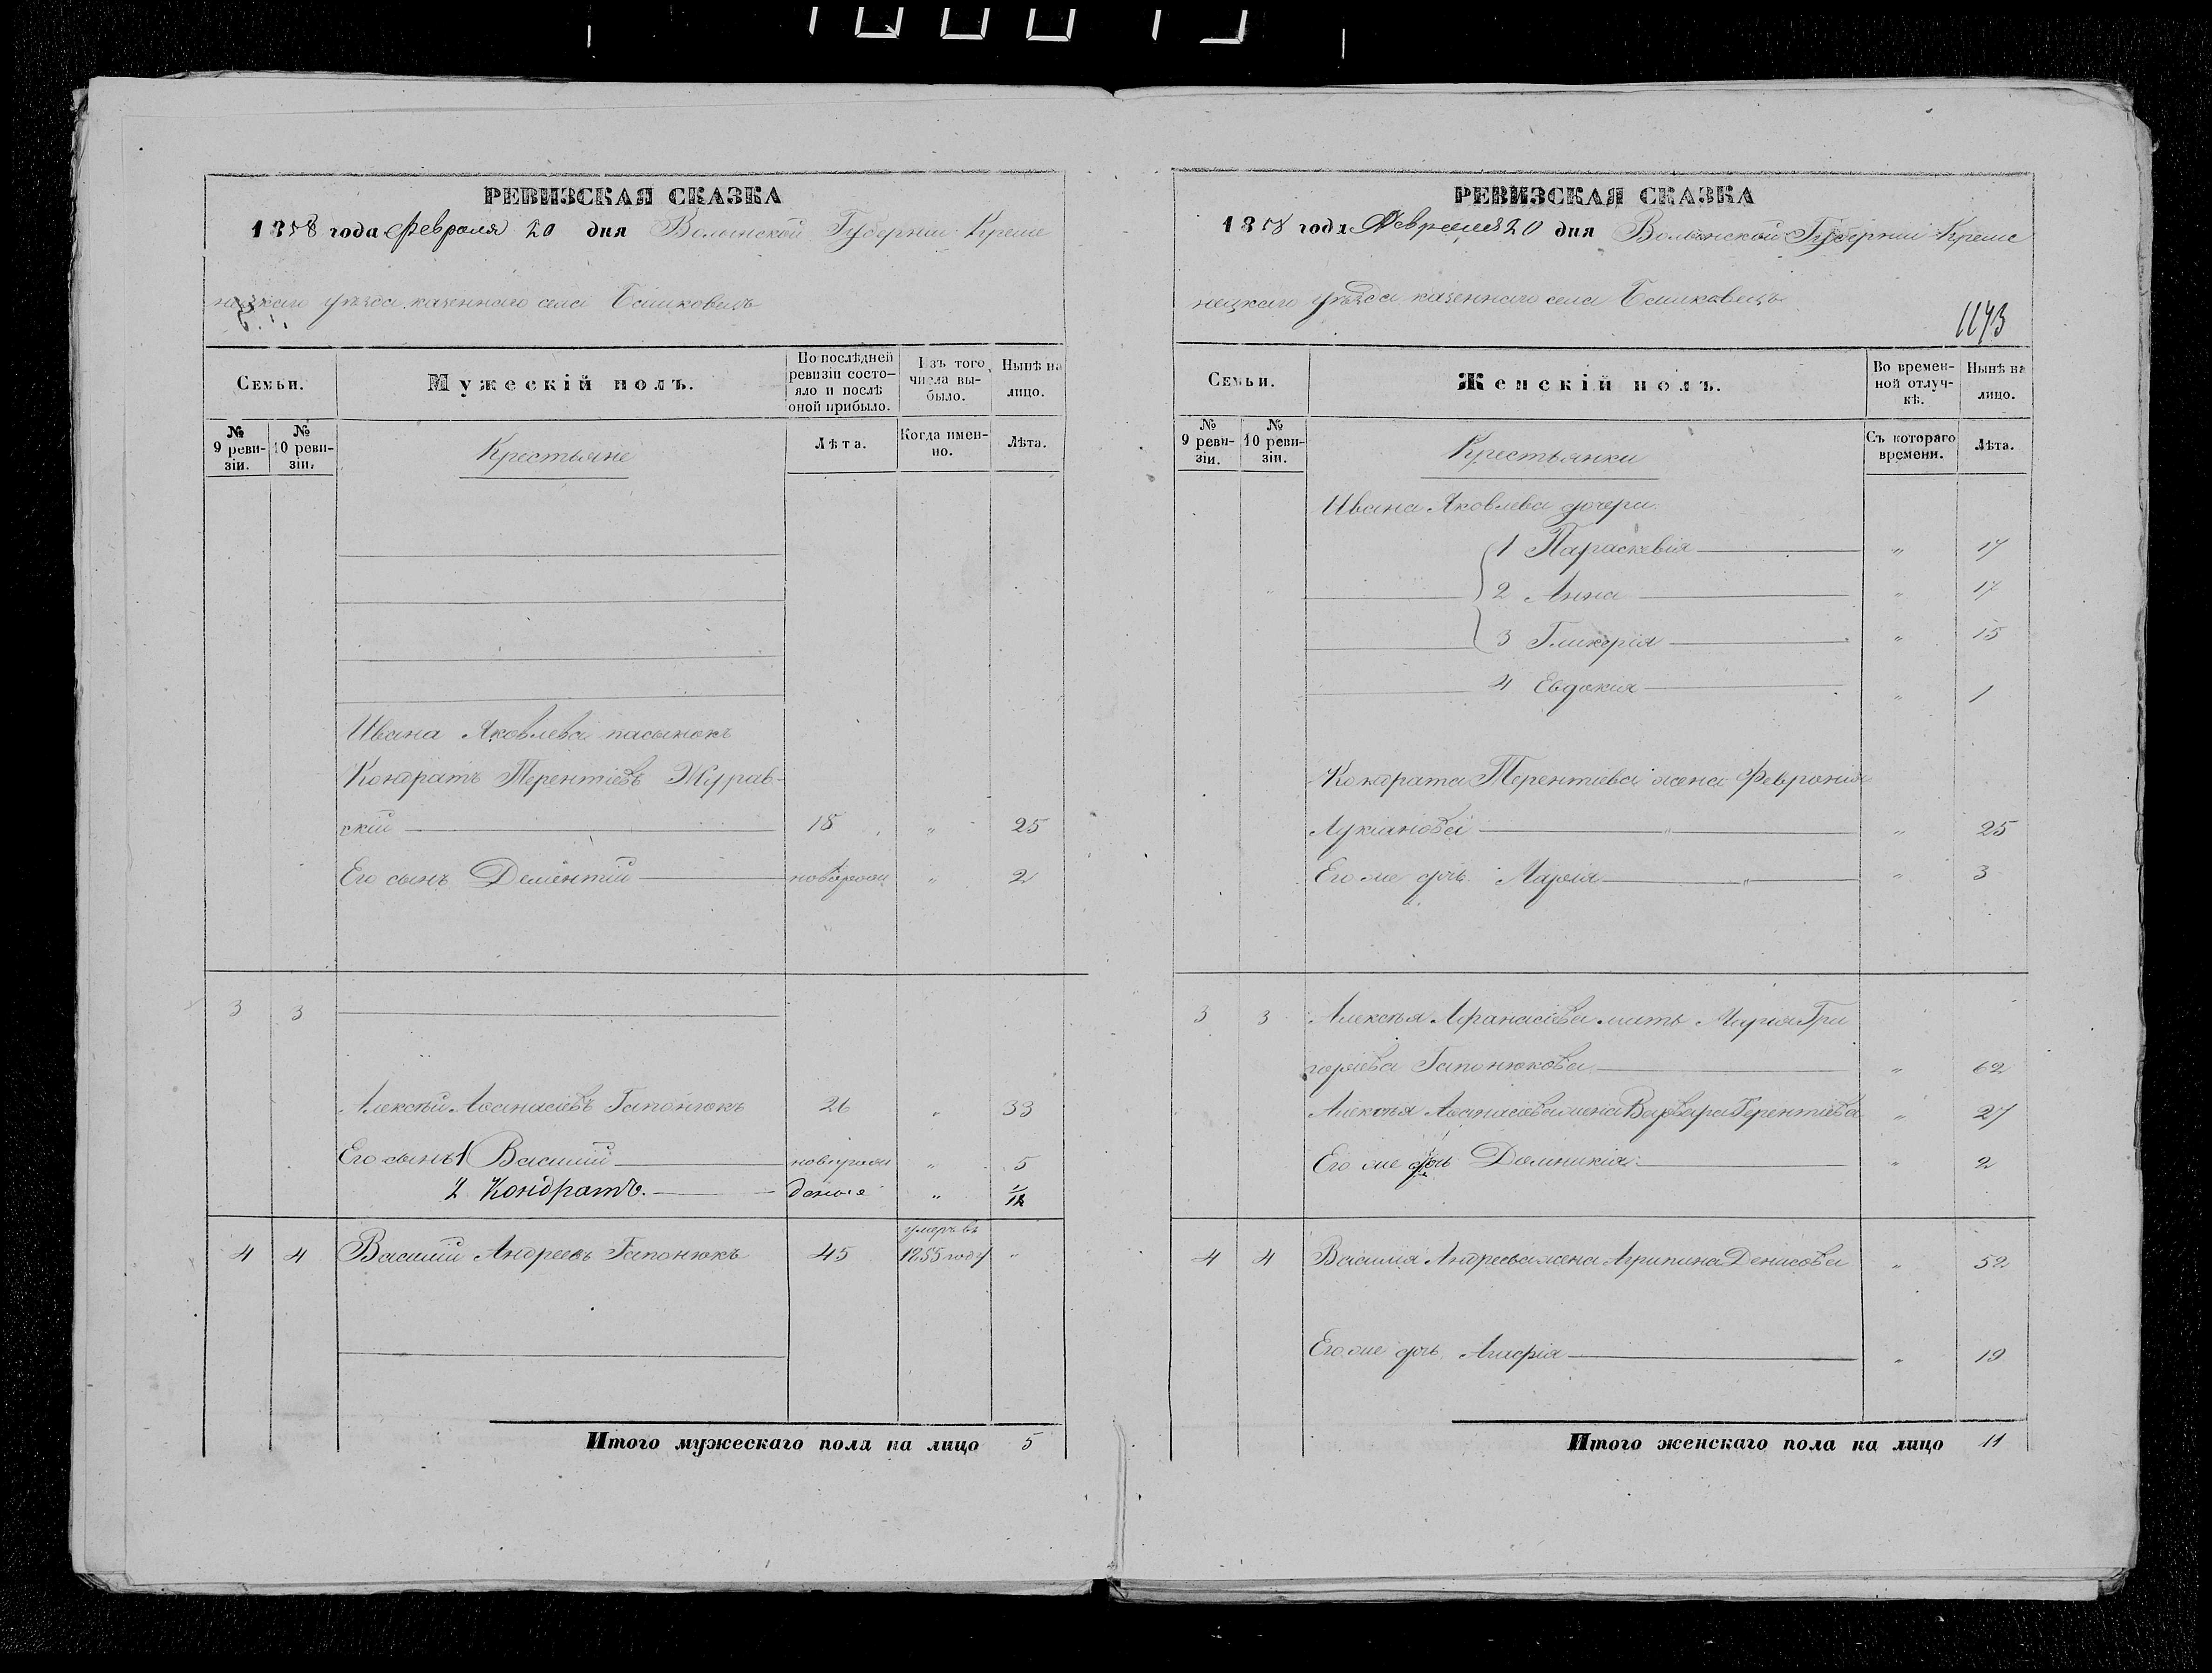 РЕВИЗСКАЯ СКАЗКА
1858 года Февраля 20 дня Волынской Губернии Креме
нецкаго уѣзда казеннаго села Башковецъ
Семьи.
Мужескій полъ.
По послѣдней ревизіи состо-
яло и послѣ
оной прибыло.
Изъ того
числа вы-
было.
Нынѣ на
лицо.
№
9 реви-
зіи.
№
10 реви-
зіи.
Крестьяне
Лѣта.
Когда имен-
но.
Лѣта.
Ивана Яковлева пасынокъ
Кондратъ Терентіевъ Журав-
скій 18 " 25
Его сынъ Дементій новорожд " 2
3 3
Алексѣй Аѳанасіевъ Гапонюкъ 26 " 33
Его сынъ 1 Василий новорожд " 5
2 Кондратъ. " 1/12
4 4 Василий Андреевъ Гапонюкъ 45 умеръ въ 1855 году "
Итого мужескаго пола на лицо 5
РЕВИЗСКАЯ СКАЗКА
1858 года Февраля 20 дня Волынской Губернии Креме
нецкаго уѣзда казеннаго села Башковецъ
1143
Семьи.
Женскій полъ.
Во времен-
ной отлуч-
кѣ.
Нынѣ на
лицо.
№
9 реви-
зіи.
№
10 реви-
зіи.
Крестьянки
Съ котораго
времени.
Лѣта.
Ивана Яковлева дочери
1 Параскевія " 17
2 Анна " 17
3 Гликерія " 15
4 Евдокия " 1
Кондрата Терентіева жена Февронія
Лукіанова " " 25
Его же дочь Марія " " 3
3 3 Алексѣя Афанасіева мать Марія Гри
горіева Гапонюкова " 62
Алексѣя Аѳанасіева жена Варвара Терентіева " 27
Его же дочь Домникія " 2
4 4 Василия Андреева жена Агрипина Денисова " 52
Его же дочь Агафія " 19
Итого женскаго пола на лицо 11